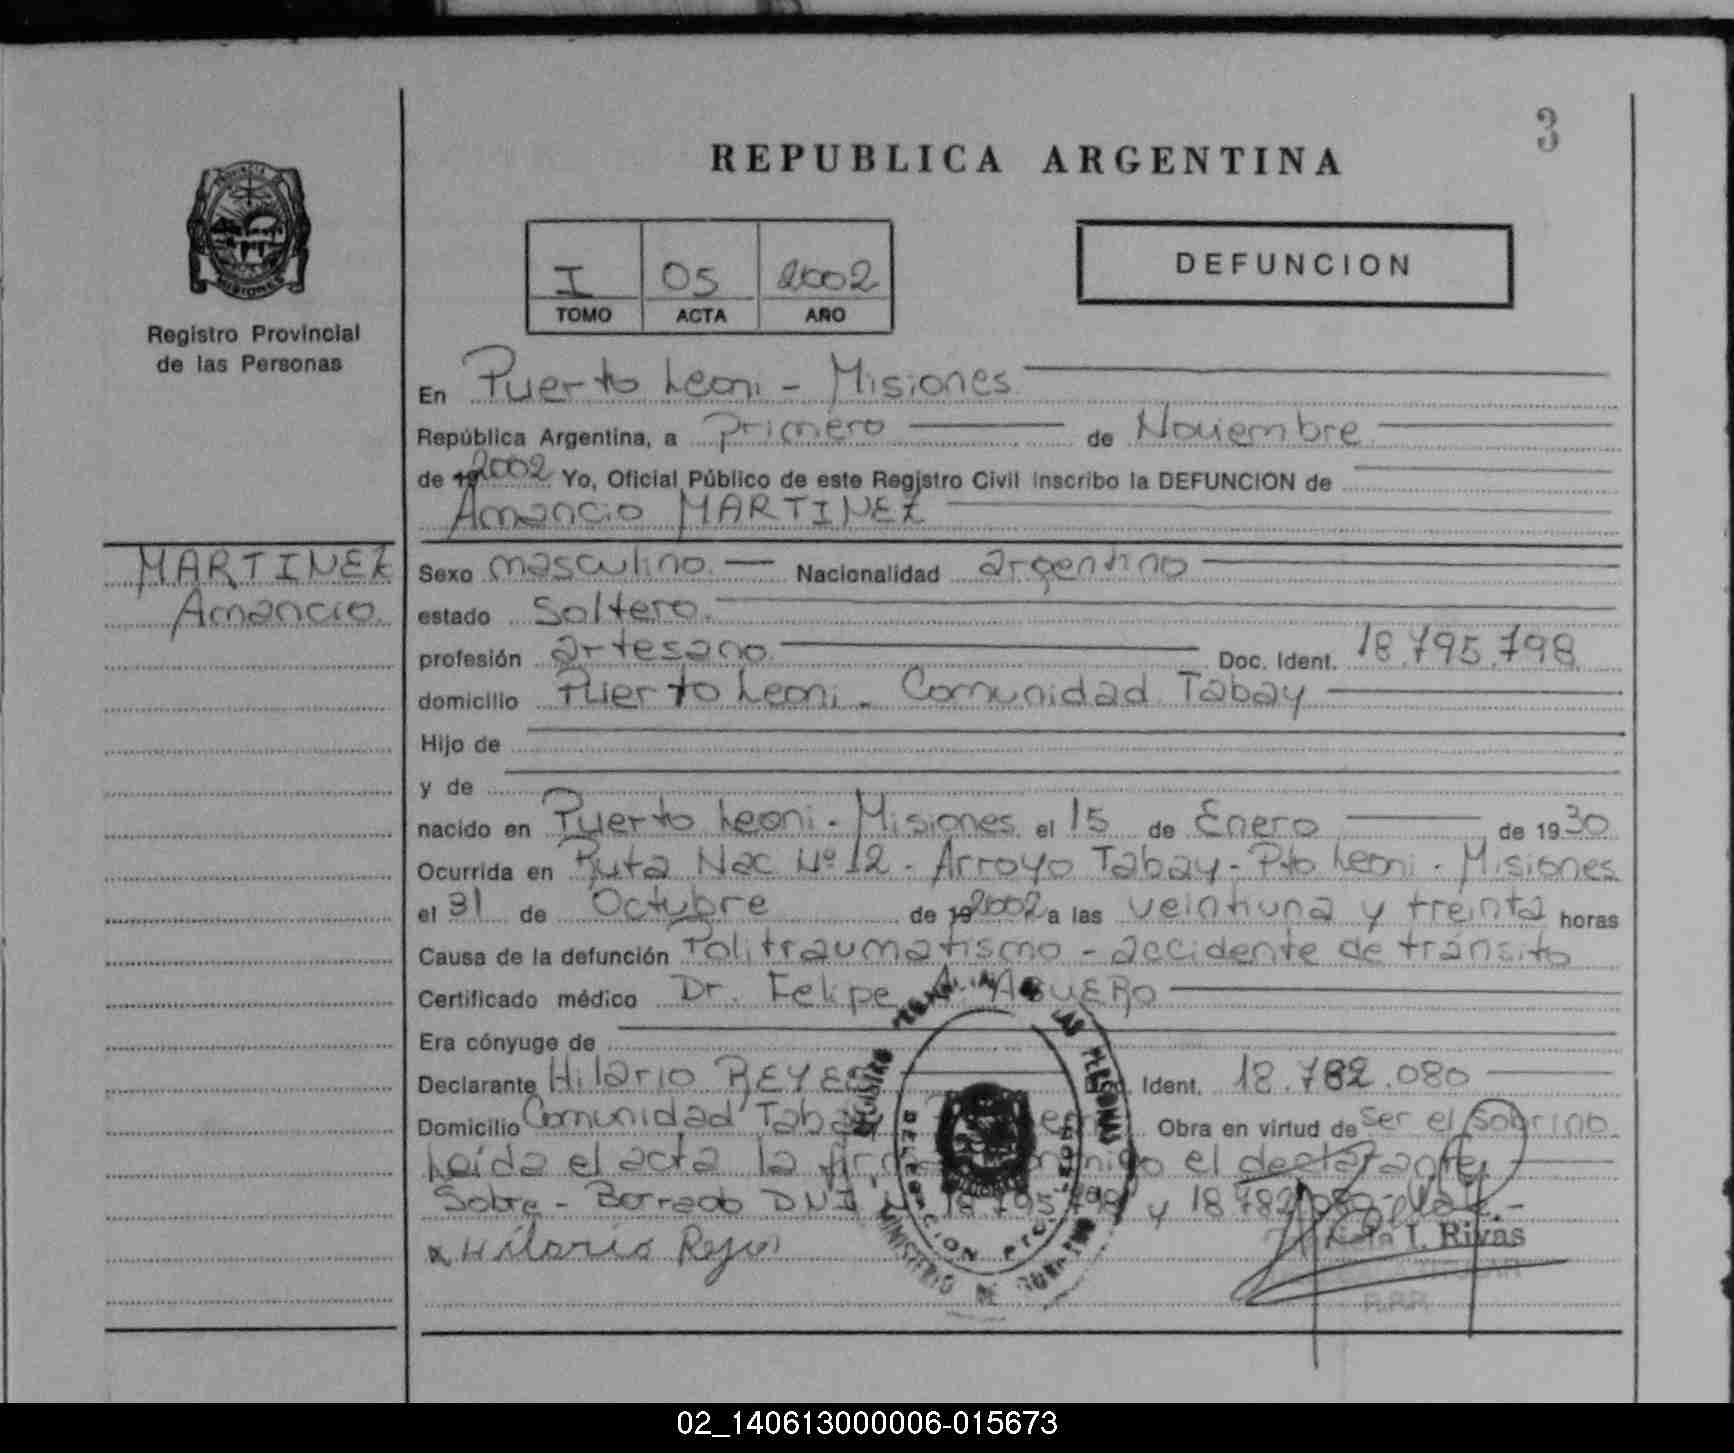 3
REPUBLICA ARGENTINA
I 05 2002
TOMO ACTA AÑO
DEFUNCION
Registro Provincial
de las Personas
En Puerto Leoni - Misiones
República Argentina, a primero de Noviembre
de 19 2002 Yo, Oficial Público de este Registro Civil inscribo la DEFUNCION de
Amancio MARTINEZ
MARTINEZ
Amancio
Sexo masculino Nacionalidad argentino
estado Soltero.
profesión artesano Doc. Ident. 18.795.798
domicilio Puerto Leoni - Comunidad Tabay
Hijo de
y de
nacido en Puerto Leoni - Misiones el 15 de Enero de 1930
Ocurrida en Ruta Nac Nº 12 - Arroyo Tabay - Pto Leoni - Misiones
el 31 de Octubre de 19 2002 a las veintiuna y treinta horas
Causa de la defunción Politraumatismo - accidente de tránsito
Certificado médico Dr. Felipe A. AGUERO
Era cónyuge de
Declarante Hilario REYES Ident. 18.782.080
Domicilio Comunidad Tabay Obra en virtud de ser el sobrino
Leída el acta la firma conmigo el declarante
Sobre - Borrado DNI 18.795.798 y 18.782.080 - Vale.-
x Hilario Reyes
I. Rivas
REGISTRO PROVINCIAL DE LAS PERSONAS
DELEGACION PTO. LEONI
MINISTERIO DE GOBIERNO
02_140613000006-015673